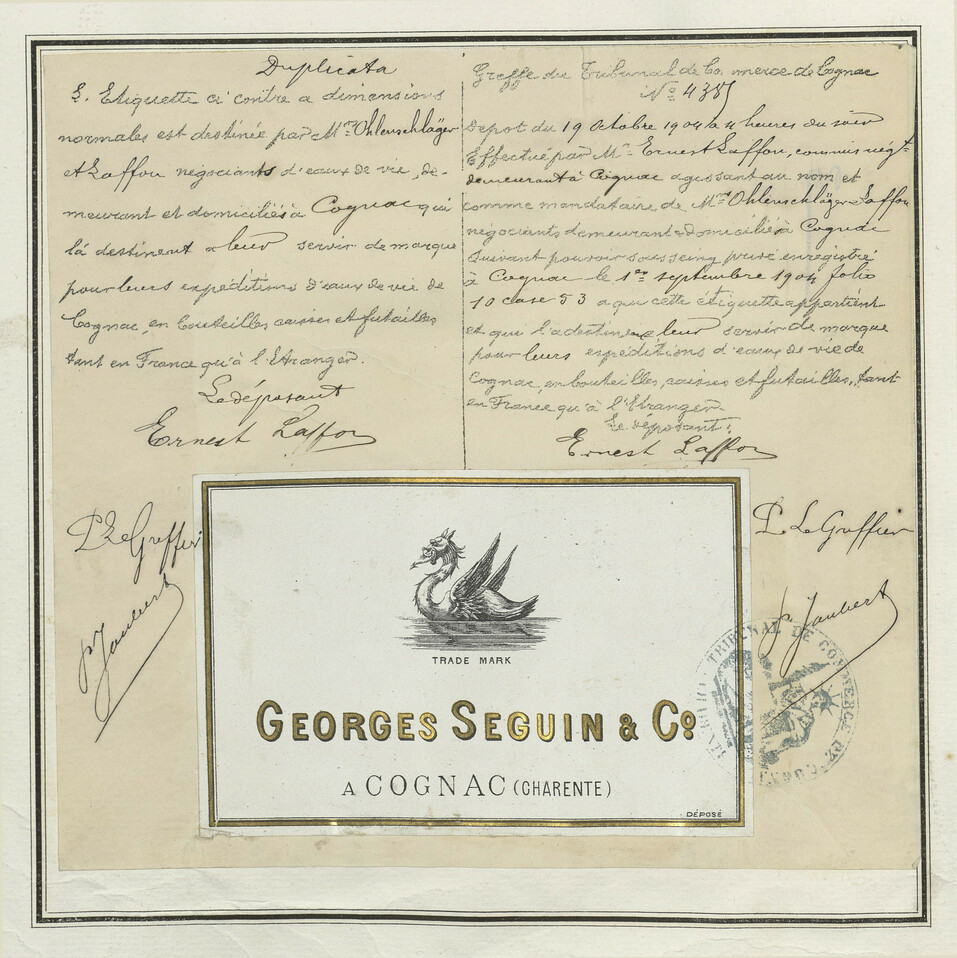 Duplicata
L'Etiquette ci contre a dimensions
normales est destinée par Mrs Ohlenschläger
et Laffon négociants d'eaux de vie, de-
meurant et domiciliés à Cognac qui
la destinent a leur servir de marque
pour leurs expéditions d'eaux de vie de
Cognac, en bouteilles caisses et futailles
tant en France qu'à l'Etranger.
Le déposant
Ernest Laffon
Le Greffier
Jaubert
Greffe du Tribunal de Commerce de Cognac
No
Depot du 19 Octobre 1904 à 4 heures du soir
Effectué par Mr Ernest Laffon, commis négt
demeurant à Cognac agissant au nom et
comme mandataire de Mrs Ohlenschläger Laffon
négociants demeurant & domiciliés à Cognac
suivant pouvoir sous seing privé enregistré
à Cognac le 1er septembre 1904 folio
10 case 53 a qui cette étiquette appartient
et qui l'a destinent a leur servir de marque
pour leurs expéditions d'eaux de vie de
Cognac, en bouteilles, caisses et futailles, tant
en France qu'à l'Etranger
Le déposant:
Ernest Laffon
Le Greffier
Jaubert
TRADE MARK
GEORGES SEGUIN & Co
A COGNAC (CHARENTE)
DÉPOSÉ
TRIBUNAL DE COMMERCE DE